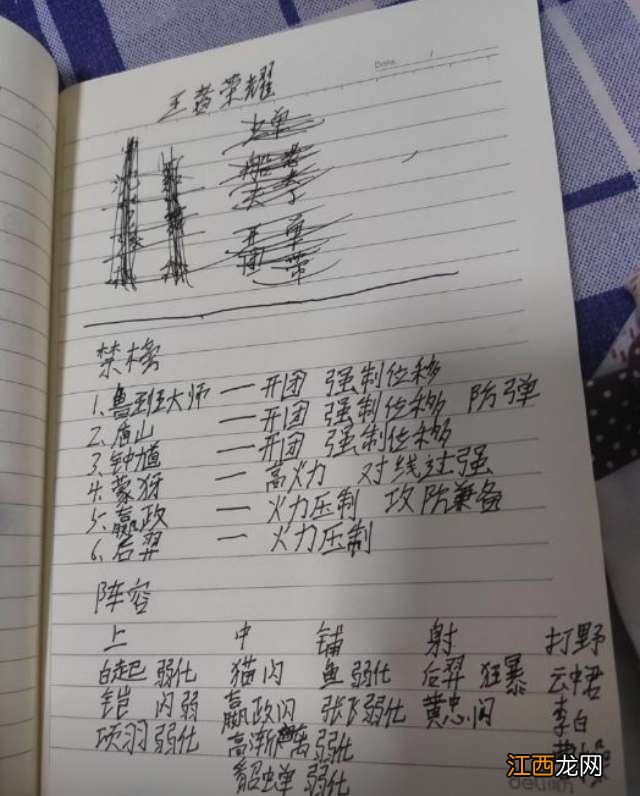 Date.
王者荣耀
上单
开单
团 带
禁榜
1、鲁班大师 — 开团 强制位移
2、盾山 — 开团 强制位移 防弹
3、钟馗 — 开团 强制位移
4、蒙犽 — 高火力 对线过强
5、嬴政 — 火力压制 攻防兼备
6、后羿 — 火力压制
阵容
上 中 铺 射 打野
白起 弱化 猫 闪 鱼 弱化 后羿 狂暴 云中君
铠 闪 弱 嬴政闪 张飞弱化 黄忠闪 李白
项羽 弱化 高渐离 弱化
貂蝉 弱化
deli
江西龙网